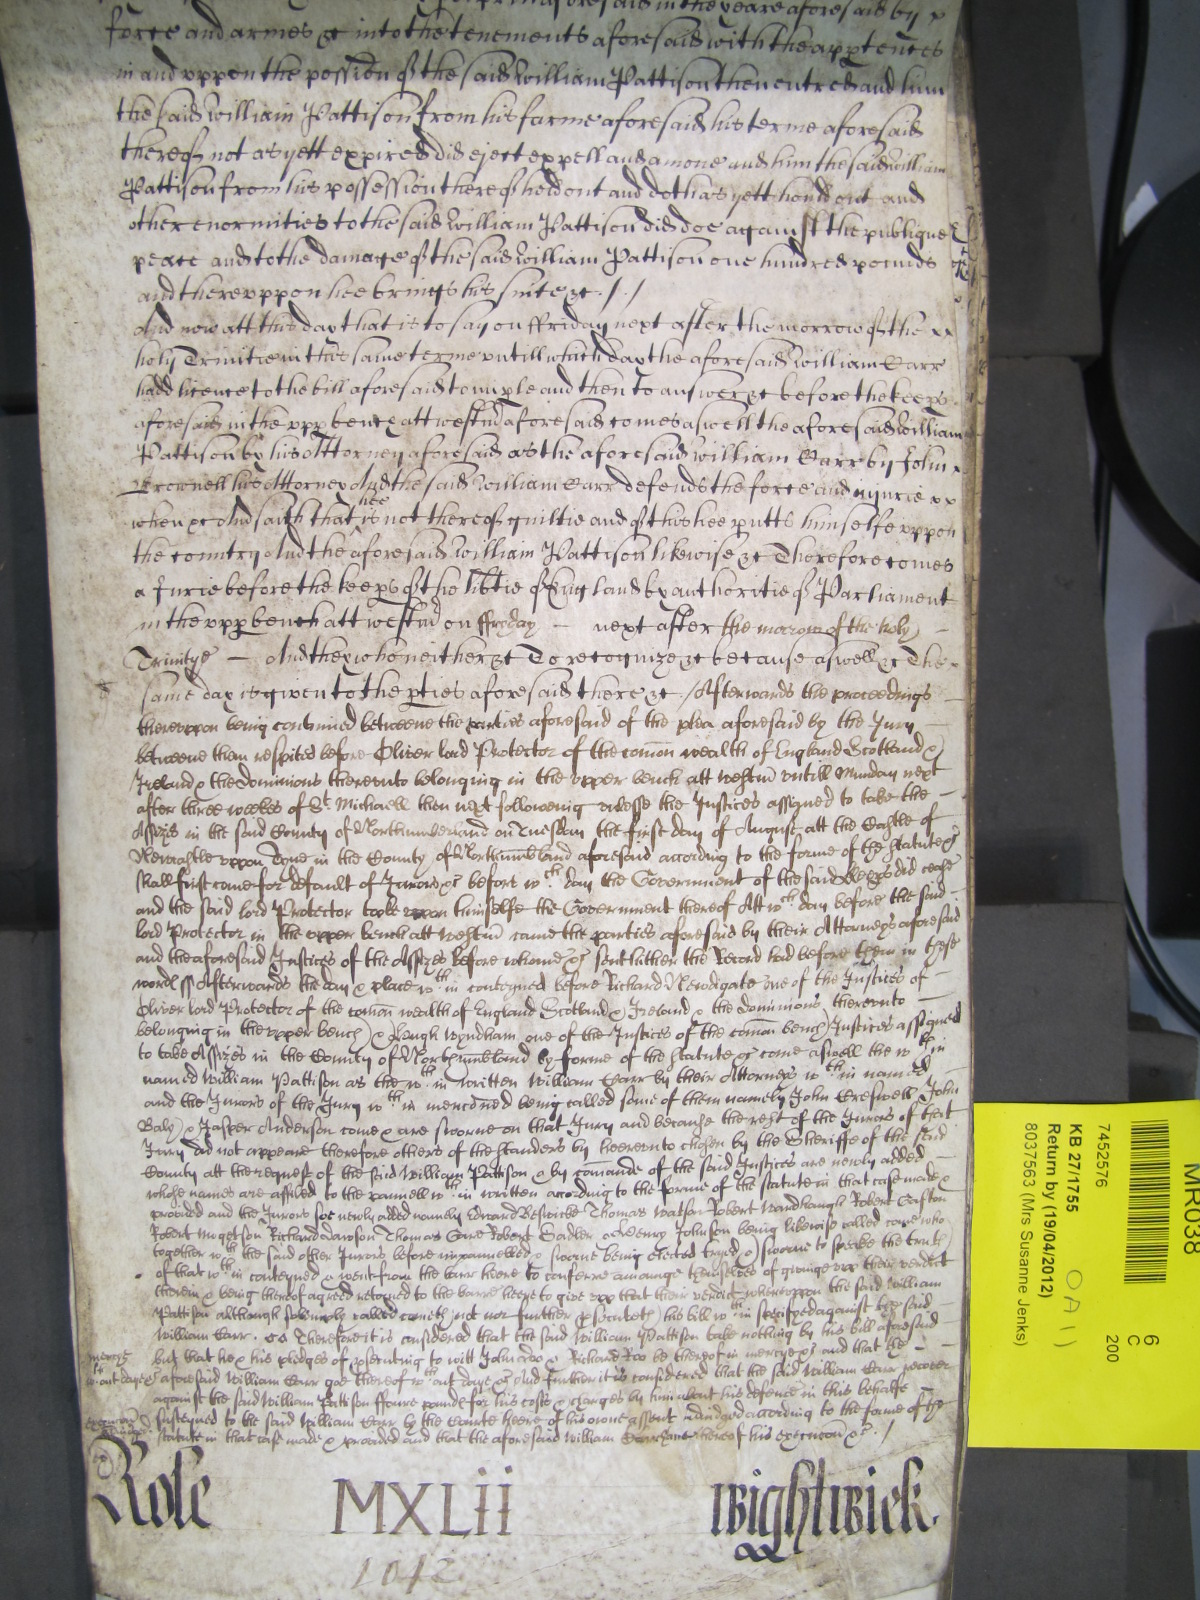 force and armes &c into the tenements aforesaid with the apptences
in and vppon the possion of the said William Pattison then entred and him
the said William Pattison from his farme aforesaid his terme aforesaid
thereof not as yett expired did eject expell and amoue and him the said William
Pattison from his possession thereof hold out and doth as yett hould out and
other enormities to the said William Pattison did doe against the publique
peace and to the damage of the said William Pattison one hundred pounds
and therevppon hee brings his suite &c
And now att this day that is to say on ffriday next after the morrow of the
holy Trinitie in this same terme vntill which day the aforesaid William Carr
hadd licence to the bill aforesaid to imple and then to answer &c before the keeps
aforesaid in the vpp bench att westm aforesaid comes aswell the aforesaid William
Pattison by his Attorney aforesaid as the aforesaid William Carr by John
Brownell his Attorney And the said William Carr defends the force and injurie
when &c And saith that hee is not thereof guiltie and of this hee putts himselfe vppon
the country And the aforesaid William Pattison likewise &c Therefore comes
a Jurie before the keeps of the libtie of England by authoritie of Parliament
in the vpp bench att westm on ffryday next after the morrow of the holy
Trinitye And they who neither &c To recognize &c because aswell &c The
same day is given to the pties aforesaid there &c / Afterwards the proceedings
therevppon being continued betweene the parties aforesaid of the plea aforesaid by the Jury
betweene them respited before Oliver lord Protector of the comon wealth of England Scotland &
Ireland & the Dominions therevnto belonging in the vpper bench att westm vntill Munday next
after three weekes of St. Michaell then next following vnlesse the Justices assigned to take the
Assizes in the said County of Northumberland on Tuesday the first day of August att the Castle of
Newcastle vppon Tyne in the County of Northumbland aforesaid according to the forme of the statute &c
shall first come for default of Jurors &c before wch. day the Government of the said keeps did cease
and the said lord Protector tooke vpon himselfe the Government thereof Att wch day before the said
lord Protector in the vpper bench att westm came the parties aforesaid by their Attorneys aforesaid
and the aforesaid Justices of the Assizes before whome &c sent hither the Record had before them in these
words ss Afterwards the day & place wth.in conteyned before Richard Newdigate one of the Justices of
Oliver lord Protector of the comon wealth of England Scotland & Ireland & the dominions therevnto
belonging in the vpper bench & Hugh Wyndham one of the Justices of the comon bench Justices assigned
to take Assizes in the County of Northumbland by forme of the statute &c come aswell the wth in
named William Pattison as the wth.in written William Carr by their Attorneys wth in named
and the Jurors of the Jury wth in mencioned being called some of them namely John Creswell John
Baly & Jasper Anderson come & are sworne on that Jury and because the rest of the Jurors of that
Jury did not appeare therefore others of the standers by heerevnto chosen by the Sheriffe of the said
County att the request of the said William Pattison & by comande of the said Justices are newly added
whose names are affiled to the pannell wth.in written according to the forme of the statute in that case made &
provided and the Jurors soe newly added namely Edward Beswicke Thomas Watson Robert Robert
Robert Richard Dawson Thomas Robert Sadler & Henry Johnson being likewise called come who
together wth the said other Jurors before impannelled & sworne being elected tryed & sworne to speake the truth
of that wth in conteyned & went from the barr heere to conferre amonge themselves of giveinge vpp their verdict
therein & being thereof agreed retorned to the barre heere to give vpp that their verdict wherevppon the said William
Pattison although solemnly called cometh not nor further psecuteth his bill wth in specifyed against the said
William Carr. Therefore it is considered that the said William Pattison take nothing by his bill aforesaid
but that he & his pledges of psecuting to witt John Doo & Richard Roo be thereof in mercye &c and that the
aforesaid William Carr goe thereof wth out daye &c And further it is considered that the said William Carr recover
against the said William Pattison ffoure pounds for his costs & charges by him about his defence in this behalfe
susteyned to the said William Carr by the Courte heere of his owne assent adiudged according to the forme of the
statute in that case made & provided and that the aforesaid William Carr have thereof his execucon &c. /
mercye
wth out daye
Role MXLii wightwick
1042
MR038
7452576
KB 27/1755
Return by (19/04/2012)
8037563 (Mrs Susanne Jenks)
6
C
200
OA 1)